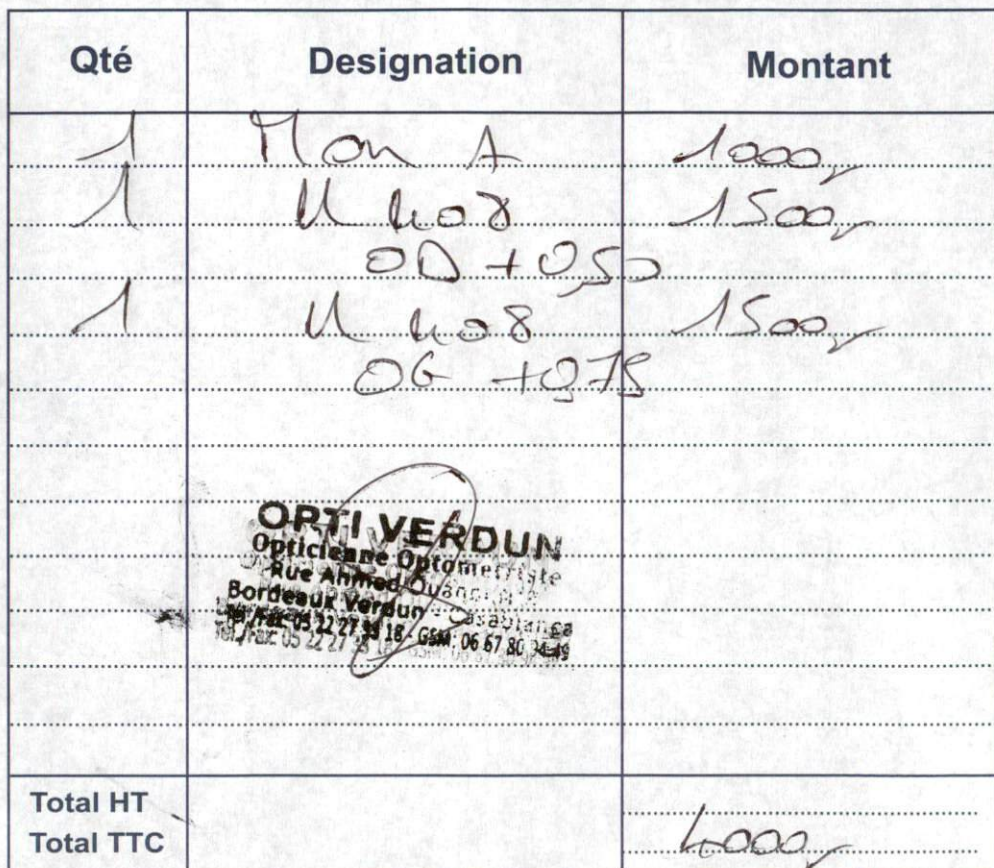 Qté Designation Montant
1 Mon A 1000
1 V 408 1500
OD +0,50
1 V 408 1500
OG +0,75
OPTI VERDUN
Opticienne Optométriste
Rue Ahmed
Bordeaux Verdun - Casablanca
Tél/Fax: 05 22 27 18 - GSM: 06 67 80
Total HT
Total TTC 4000